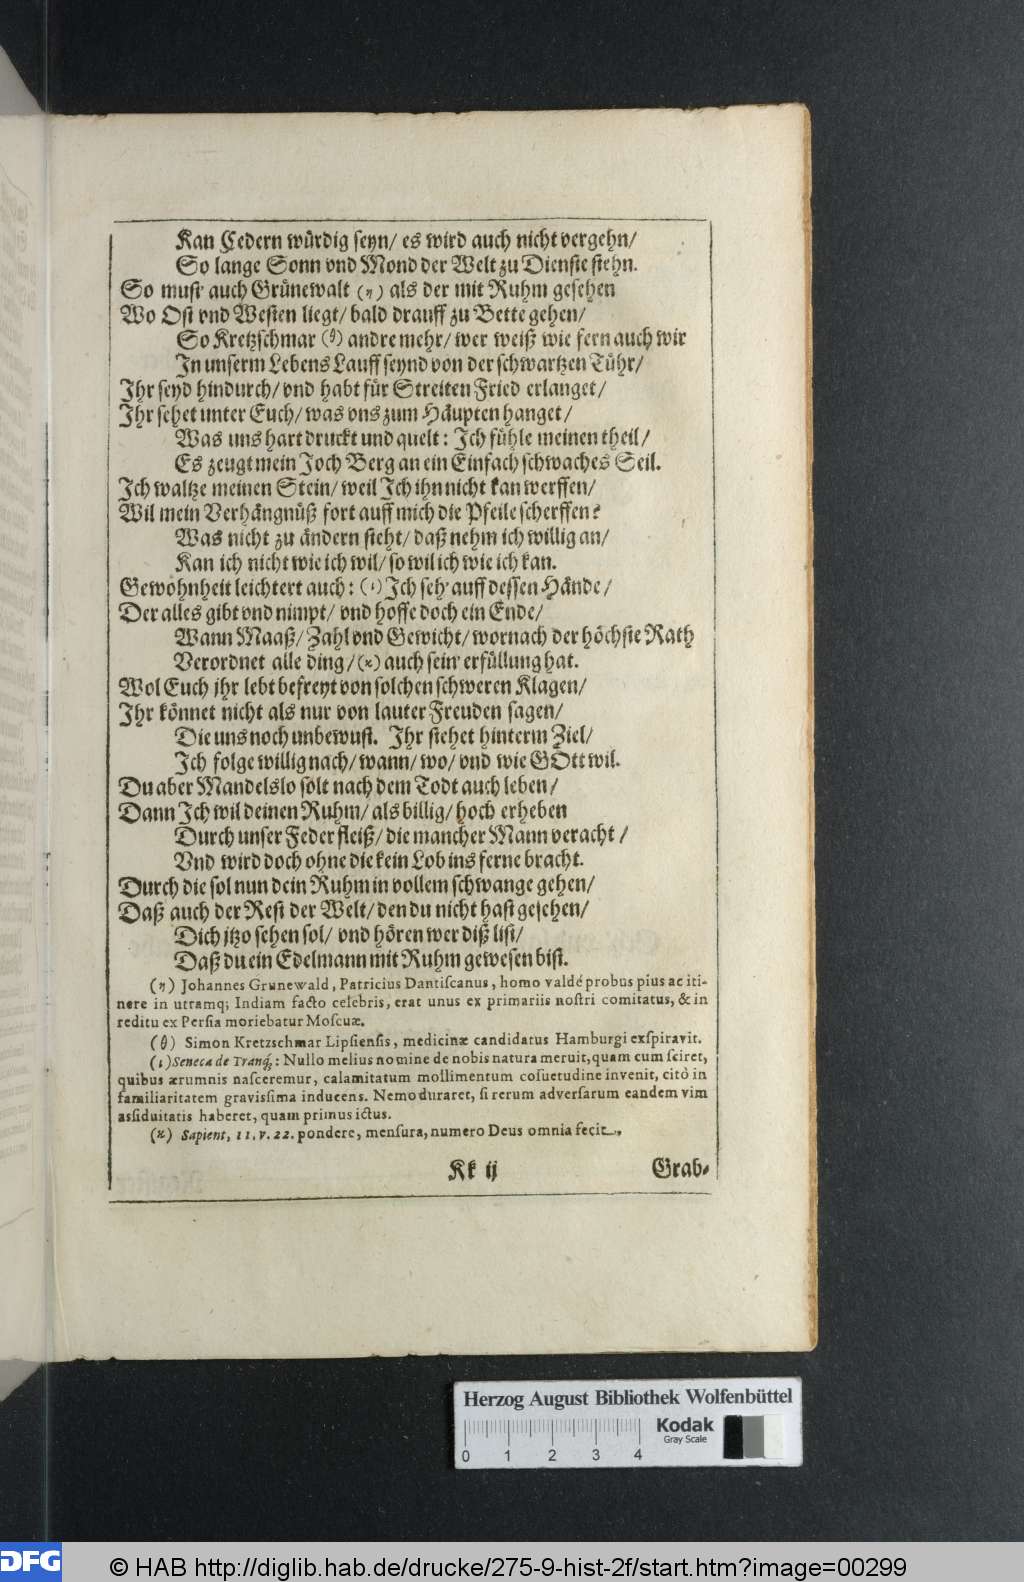 Kan Cedern würdig seyn/ es wird auch nicht vergehn/
So lange Sonn vnd Mond der Welt zu Dienste stehn.
So must auch Grünewalt (η) als der mit Ruhm gesehen
Wo Ost vnd Westen liegt/ bald drauff zu Bette gehen/
So Kretzschmar (θ) andre mehr/ wer weiß wie fern auch wir
In unserm Lebens Lauff seynd von der schwartzen Tühr/
Ihr seyd hindurch/ vnd habt für Streiten Fried erlanget/
Ihr sehet unter Euch/ was vns zum Häupten hanget/
Was uns hart druckt und quelt: Ich fühle meinen theil/
Es zeugt mein Joch Berg an ein Einfach schwaches Seil.
Ich waltze meinen Stein/ weil Ich ihn nicht kan werffen/
Wil mein Verhängnüß fort auff mich die Pfeile scherffen?
Was nicht zu ändern steht/ daß nehm ich willig an/
Kan ich nicht wie ich wil/ so wil ich wie ich kan.
Gewohnheit leichtert auch: (ι) Ich seh' auff dessen Hände/
Der alles gibt vnd nimpt/ vnd hoffe doch ein Ende/
Wann Maaß/ Zahl vnd Gewicht/ wornach der höchste Rath
Verordnet alle ding/ (ϰ) auch sein' erfüllung hat.
Wol Euch jhr lebt befreyt von solchen schweren Klagen/
Ihr könnet nicht als nur von lauter Freuden sagen/
Die uns noch unbewust. Ihr stehet hinterm Ziel/
Ich folge willig nach/ wann/ wo/ vnd wie GOtt wil.
Du aber Mandelslo solt nach dem Todt auch leben/
Dann Ich wil deinen Ruhm/ als billig/ hoch erheben
Durch unser Feder fleiß/ die mancher Mann veracht/
Vnd wird doch ohne die kein Lob ins ferne bracht.
Durch die sol nun dein Ruhm in vollem schwange gehen/
Daß auch der Rest der Welt/ den du nicht hast gesehen/
Dich jtzo sehen sol/ vnd hören wer diß list/
Daß du ein Edelmann mit Ruhm gewesen bist.
(η) Johannes Grunewald, Patricius Dantiscanus, homo valdé probus pius ac iti-
nere in utramq; Indiam facto celebris, erat unus ex primariis nostri comitatus, & in
reditu ex Persia moriebatur Moscuæ.
(θ) Simon Kretzschmar Lipsiensis, medicinæ candidatus Hamburgi exspiravit.
(ι) Seneca de Tranq;: Nullo melius nomine de nobis natura meruit, quam cum sciret,
quibus ærumnis nasceremur, calamitatum mollimentum cosuetudine invenit, citò in
familiaritatem gravissima inducens. Nemo duraret, si rerum adversarum eandem vim
assiduitatis haberet, quam primus ictus.
(ϰ) Sapient, 11. v. 22. pondere, mensura, numero Deus omnia fecit.
Kk ij Grab-
Herzog August Bibliothek Wolfenbüttel
Kodak
Gray Scale
0 1 2 3 4
DFG © HAB http://diglib.hab.de/drucke/275-9-hist-2f/start.htm?image=00299